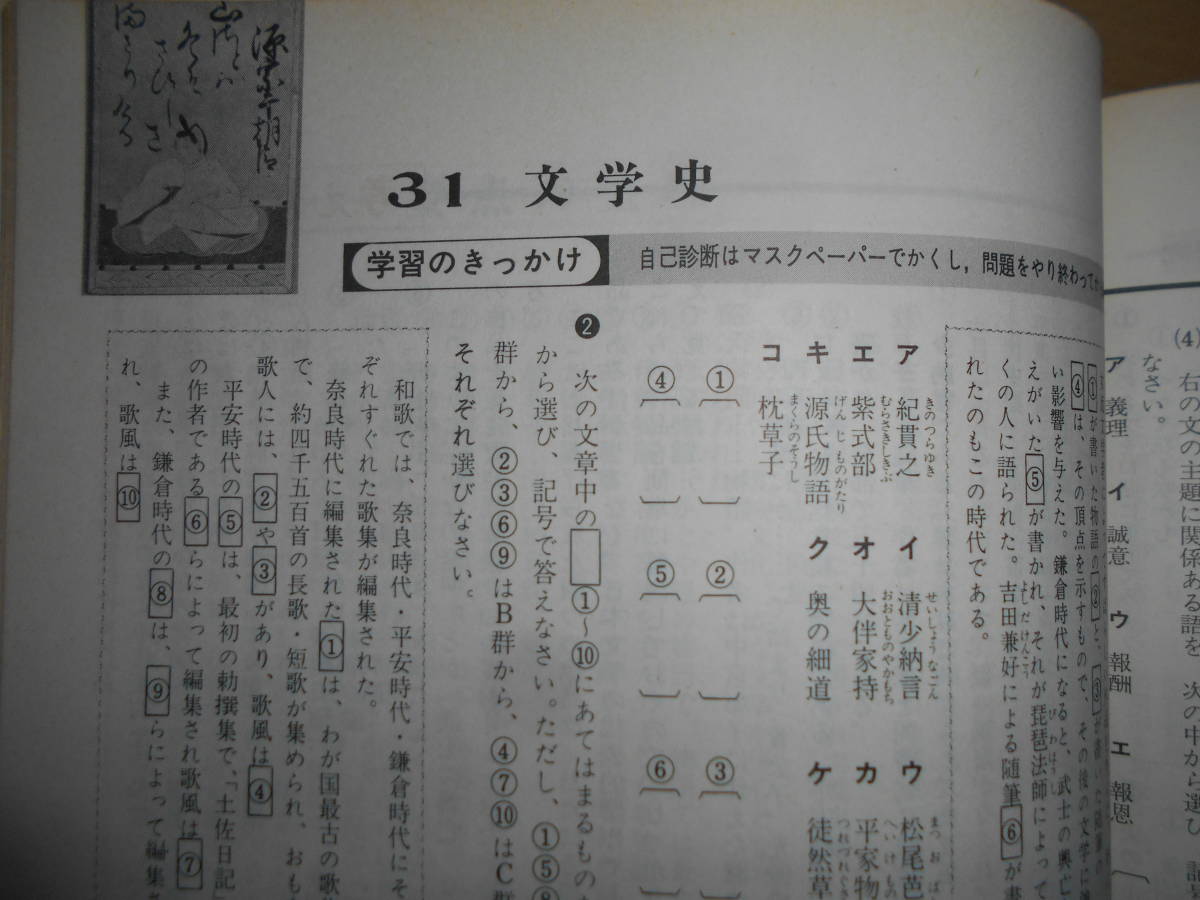 31 文学史
学習のきっかけ
自己診断はマスクペーパーでかくし，問題をやり終わってか
(4)
右の文の主題に関係ある語を、次の中から選び、記
なさい。
ア 義理 イ 誠意 ウ 報酬 エ 報恩
①が書いた物語の②と、③が書いた随筆の
④は、その頂点を示すもので、その後の文学に
い影響を与えた。鎌倉時代になると、武士の興亡
えがいた⑤が書かれ、それが琵琶法師によって
くの人に語られた。吉田兼好による随筆⑥が書
れたのもこの時代である。
ア 紀貫之 イ 清少納言 ウ 松尾芭
エ 紫式部 オ 大伴家持 カ 平家物
キ 源氏物語 ク 奥の細道 ケ 徒然草
コ 枕草子
① ② ③
④ ⑤ ⑥
❷ 次の文章中の□①〜⑩にあてはまるものを
から選び、記号で答えなさい。ただし、①⑤⑧
群から、②③⑥⑨はB群から、④⑦⑩はC群
それぞれ選びなさい。
和歌では、奈良時代・平安時代・鎌倉時代にそ
ぞれすぐれた歌集が編集された。
奈良時代に編集された①は、わが国最古の歌
で、約四千五百首の長歌・短歌が集められ、おも
歌人には、②や③があり、歌風は④
平安時代の⑤は、最初の勅撰集で、「土佐日記
の作者である⑥らによって編集され歌風は⑦
また、鎌倉時代の⑧は、⑨らによって編集
れ、歌風は⑩